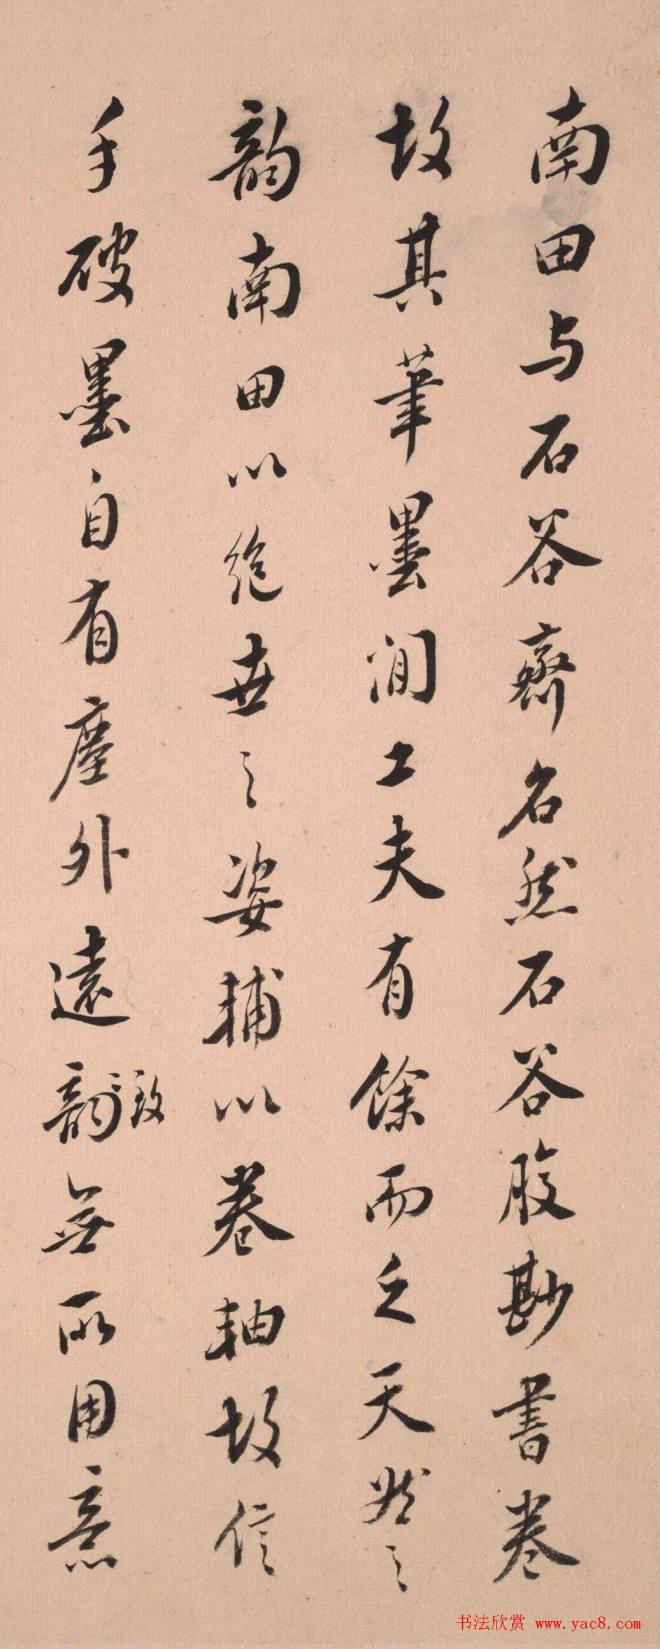 南田与石谷齊名然石谷腹尠書卷
故其筆墨間工夫有餘而乏天然之
韵南田以絶世之姿輔以卷軸故信
手破墨自有塵外遠韵致無所用意
书法欣赏 www.yac8.com